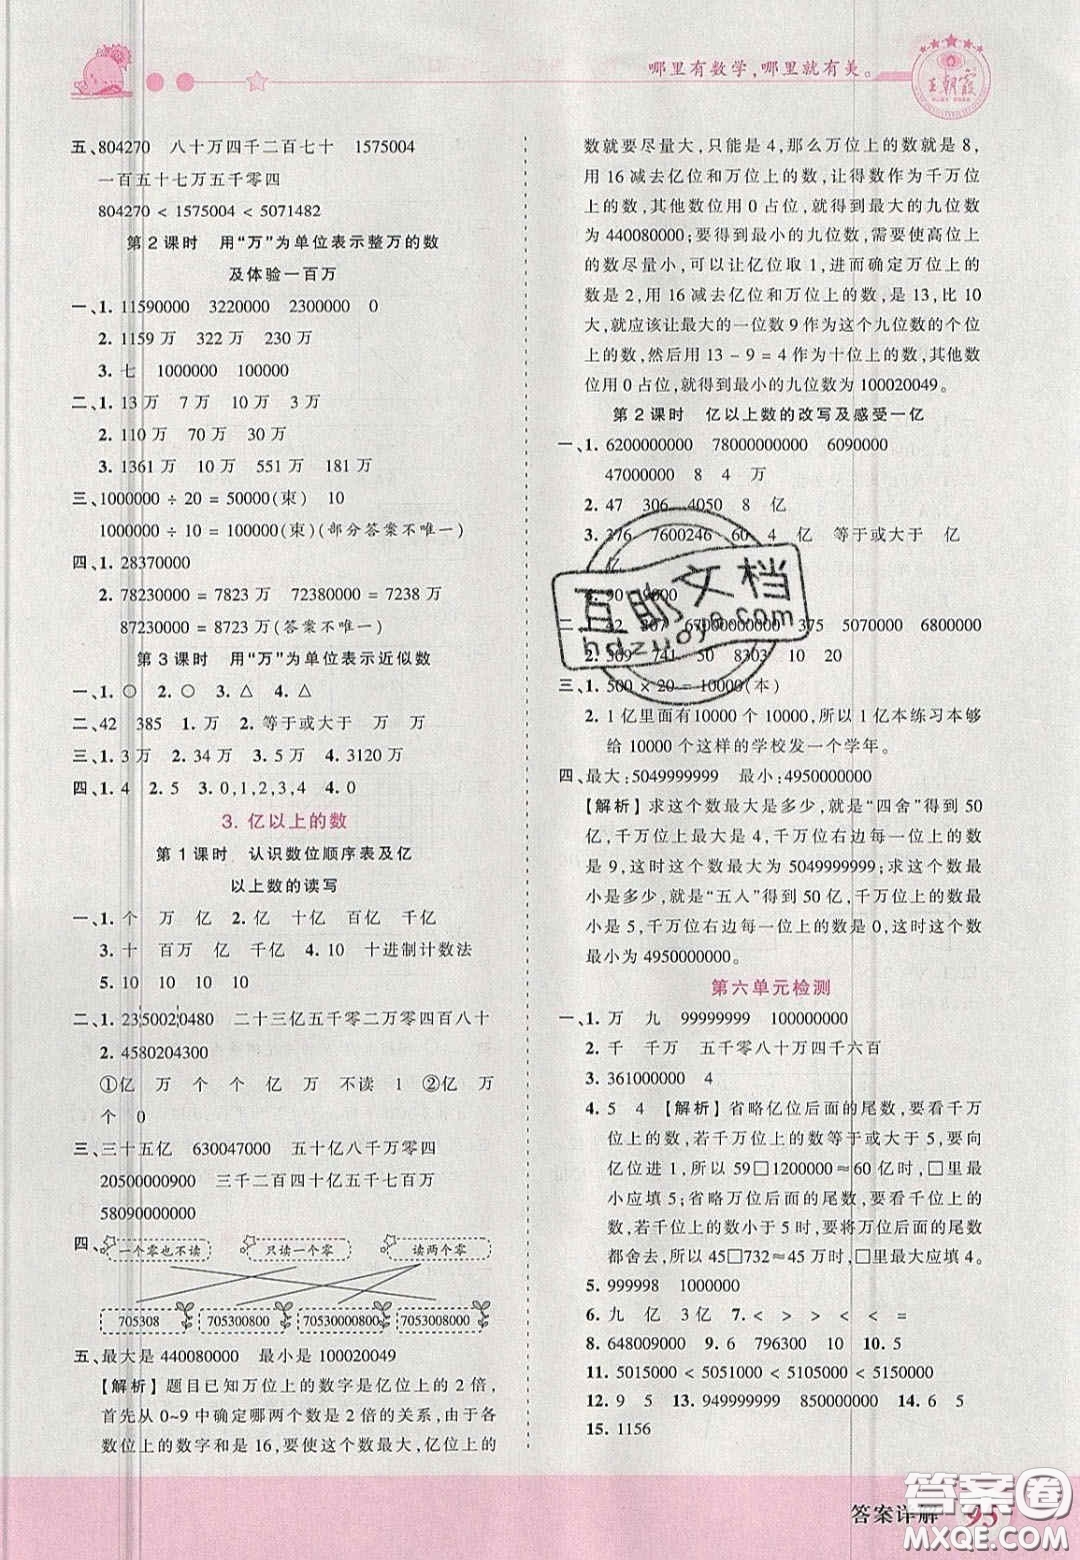 哪里有数学,哪里就有美。
王朝霞
五、804270 八十万四千二百七十 1575004
一百五十七万五千零四
804270 < 1575004 < 5071482
第2课时 用“万”为单位表示整万的数
及体验一百万
一、1. 11590000 3220000 2300000 0
2. 1159万 322万 230万
3. 七 1000000 100000
二、1. 13万 7万 9万 6万
2. 110万 70万 30万
3. 1361万 10万 551万 181万
三、1000000 ÷ 20 = 50000(束) 10
1000000 ÷ 10 = 100000(束)(部分答案不唯一)
四、1. 28370000
2. 78230000 = 7823万 72380000 = 7238万
87230000 = 8723万(答案不唯一)
第3课时 用“万”为单位表示近似数
一、1. ○ 2. ○ 3. △ 4. △
二、42 385 1. 万 2. 等于或大于 万 万
三、1. 3万 2. 34万 3. 5万 4. 3120万
四、1. 4 2. 5 3. 0,1,2,3,4 4. 0
3. 亿以上的数
第1课时 认识数位顺序表及亿
以上数的读写
一、1. 个 万 亿 2. 亿 十亿 百亿 千亿
3. 十 百万 亿 千亿 4. 10 十进制计数法
5. 10 10 10 10
二、1. 23¦5002¦0480 二十三亿五千零二万零四百八十
2. 4580204300
①亿 万 个 个 亿 万 不读 1 ②亿 万
个 0
三、三十五亿 630047000 五十亿八千万零四
20500000900 三千二百零四亿五千七百万
58090000000
四、 一个零也不读 只读一个零 读两个零
705308 705300800 70530000800 7053008000
五、最大是 440080000 最小是 100020049
【解析】题目已知万位上的数字是亿位上的2倍,
首先从0~9中确定哪两个数是2倍的关系,由于各
数位上的数字和是16,要使这个数最大,亿位上的
数就要尽量大,只能是4,那么万位上的数就是8,
用16减去亿位和万位上的数,让得数作为千万位
上的数,其他数位用0占位,就得到最大的九位数
为440080000;要得到最小的九位数,需要使高位上
的数尽量小,可以让亿位取1,进而确定万位上的
数是2,用16减去亿位和万位上的数,是13,比10
大,就应该让最大的一位数9作为这个九位数的个位
上的数,然后用13 - 9 = 4作为十位上的数,其他数
位用0占位,就得到最小的九位数为100020049。
第2课时 亿以上数的改写及感受一亿
一、1. 6200000000 78000000000 6090000
47000000 8 4 万
2. 47 306 4050 8 亿
3. 376 7600246 60 4 亿 等于或大于 亿
亿
90
二 42 67000000000 375 5070000 6800000
2. 509 741 50 8303 10 20
三、1. 500 × 20 = 10000(本)
2. 1亿里面有10000个10000,所以1亿本练习本够
给10000个这样的学校发一个学年。
四、最大:5049999999 最小:4950000000
【解析】求这个数最大是多少,就是“四舍”得到50
亿,千万位上最大是4,千万位右边每一位上的数都
是9,这时这个数最大为5049999999;求这个数最
小是多少,就是“五入”得到50亿,千万位上的数最
小是5,千万位右边每一位上的数是0,这时这个数
最小为4950000000。
第六单元检测
一、1. 万 九 99999999 100000000
2. 千 千万 五千零八十万四千六百
3. 361000000 4
4. 5 4 【解析】省略亿位后面的尾数,要看千万
位上的数,若千万位上的数等于或大于5,要向
亿位进1,所以59□1200000≈60亿时,□里最
小应填5;省略万位后面的尾数,要看千位上的
数,若千位上的数小于5时,要将万位后面的尾数
都舍去,所以45□732≈45万时,□里最大应填4。
5. 999998 1000000
6. 九 亿 3亿 7. < > > < < =
8. 648009000 9. 6 796300 10 10. 5
11. 5015000 < 5051000 < 5105000 < 5150000
12. 9 5 13. 9000000000 850000000 14. 6 5
15. 1156
互助文档
hdzuoye.com
答案详解 95
答案圈
MXQE.COM